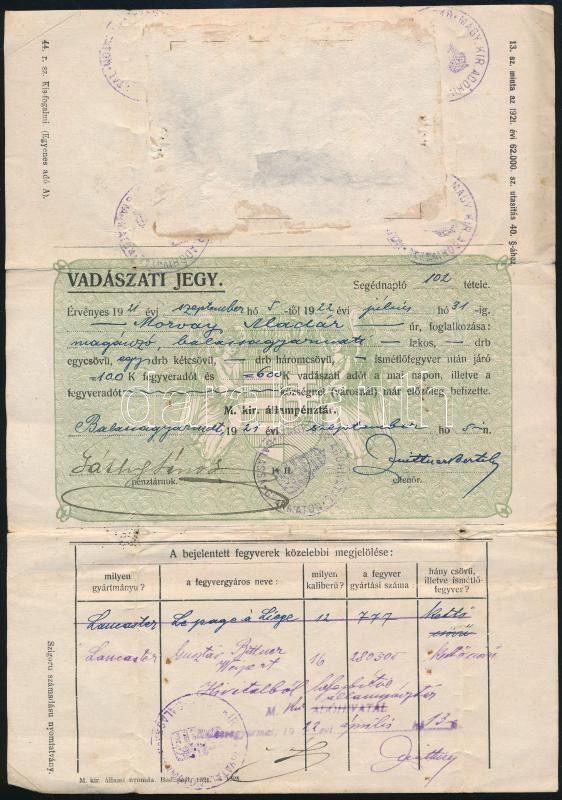 13. sz. minta az 1921. évi 62.000. sz. utasítás 40. §-ához.
44. r. sz. Kis-fogalmi (Egyenes adó A).
VADÁSZATI JEGY.
Segédnapló 102 tétele.
Érvényes 1921 évi szeptember hó 5-től 1922 évi július hó 31-ig.
Morvay Aladár úr, foglalkozása:
magánzó, balassagyarmati lakos, — drb
egycsövű, egy drb kétcsövű, — drb háromcsövű, — ismétlőfegyver után járó
=100K fegyveradót és =600K vadászati adót a mai napon, illetve a
fegyveradót községnél (városnál) már előzőleg befizette.
M. kir. állampénztár.
Balassagyarmat, 1921 évi szeptember hó 5-n.
pénztárnok.
ellenőr.
A bejelentett fegyverek közelebbi megjelölése:
milyen gyártmányu? a fegyvergyáros neve: milyen kaliberű? a fegyver gyártási száma hány csövű, illetve ismétlő-fegyver?
Lancaster Le page à Liege 12 777 kettő csövű
Lancaster Gusztáv Bittner 16 280300
Hivatalból
M. kir. ADÓHIVATAL
1922 április hó 13
Szigoru számadásu nyomtatvány.
M. kir. állami nyomda. Budapest, 1921.